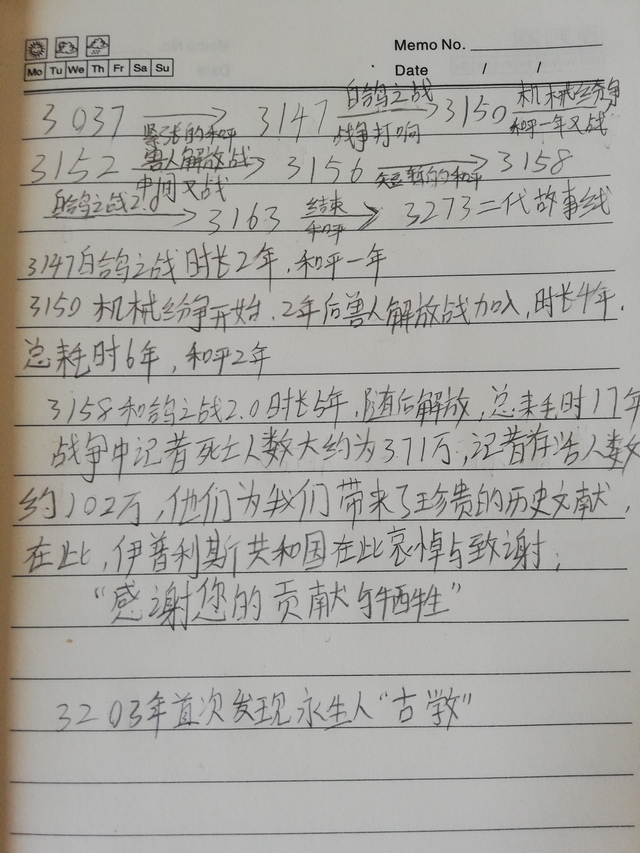 Memo No.
Mo Tu We Th Fr Sa Su
Date / /
3037 紧张的和平 3147 白鸽之战 战争打响 3150 机械纷争 和平一年又战
3152 兽人解放战 中间又战 3156 短暂的和平 3158
白鸽之战2.0 3163 结束 和平 3273二代故事线
3147白鸽之战时长2年,和平一年
3150机械纷争开始,2年后兽人解放战加入,时长4年,
总耗时6年,和平2年
3158和鸽之战2.0时长5年,随后解放,总耗时17年
战争中记者死亡人数大约为371万,记者存活人数
约102万,他们为我们带来了珍贵的历史文献,
在此,伊普利斯共和国在此哀悼与致谢;
“感谢您的贡献与牺牲”
3203年首次发现永生人“古学”